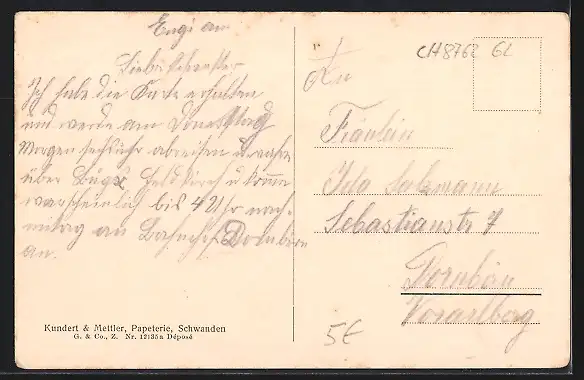 Engi am
Ich habe die Karte erhalten
und werde am Donnstag
Morgen sechs Uhr abreisen u.
über Buchs Feldkirch u. komme
warscheinlich bis 4 Uhr nach-
mitag an Bahnhof Dornbirn
an.
Kundert & Mettler, Papeterie, Schwanden
G. & Co., Z. Nr. 12135a Déposé
CH8762 GL
An
Fräulein
Ida
Sebastianstr 7
Dornbirn
Vorarlberg
5€